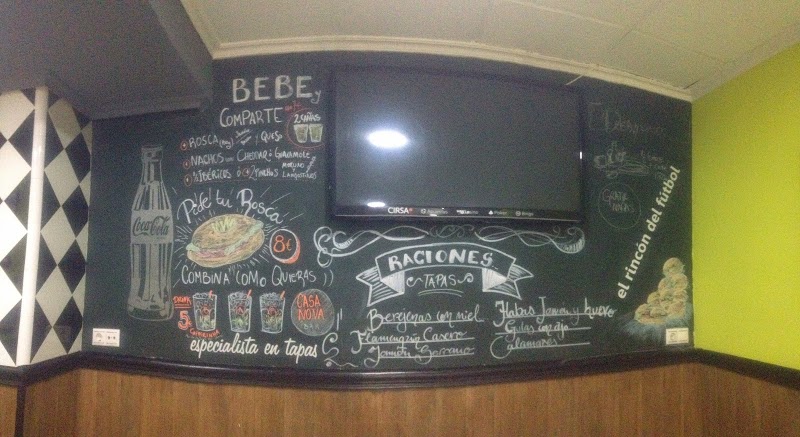 BEBE y
COMPARTE
2 CAÑAS
ROSCA Jamón y QUESO
NACHOS con CHEDDAR ó GUACAMOLE
IBÉRICOS ó
LANGOSTINOS
Pide tu Rosca
8€
COMBINA COMO QUIERAS
Coca-Cola
5
CASA NOVA
especialista en tapas
CIRSA
RACIONES
TAPAS
Berejenas con miel
Flamenquín Casero
Jamón Serrano
Habas Jamón y huevo
Gulas con ajo
Calamares
GRATIS
el rincón del futbol